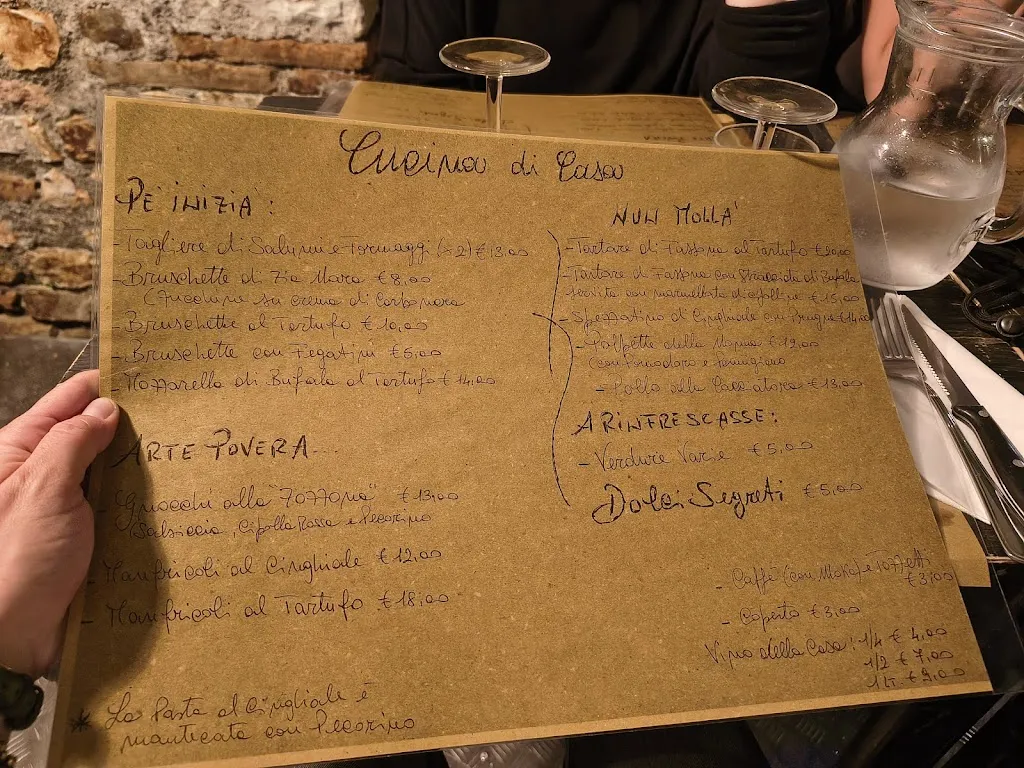 Cucina di Casa
PE' INIZIA':
- Tagliere di Salumi e Formaggi (x2) € 13,00
- Bruschette di Zia Mara € 8,00
(Zucchine su crema di Carbonara
- Bruschette al Tartufo € 10,00
- Bruschette con Fegatini € 6,00
- Mozzarella di Bufala al Tartufo € 14,00
ARTE POVERA
- Gnocchi alla "Zozzona" € 13,00
Salsiccia, Cipolla Rossa e Pecorino
- Manfricoli al Cinghiale € 12,00
- Manfricoli al Tartufo € 18,00
* La Pasta al Cinghiale è
mantecata con Pecorino
NUN MOLLA'
- Tartare di Fassona al Tartufo
- Tartare di Fassona con Stracciata di Bufala
servita con marmellata di cipolline € 15,00
- Spezzatino di Cinghiale con
- Polpette della Nonna € 12,00
(con Pomodoro e Parmigiano
- Pollo alla Cacciatora € 13,00
A RINFRESCASSE:
- Verdure Varie € 5,00
Dolci Segreti € 5,00
- Caffè (con Moka) e Tozzetti
€ 3,00
- Coperto € 3,00
Vino della Casa: 1/4 € 4,00
1/2 € 7,00
1 LT € 9,00